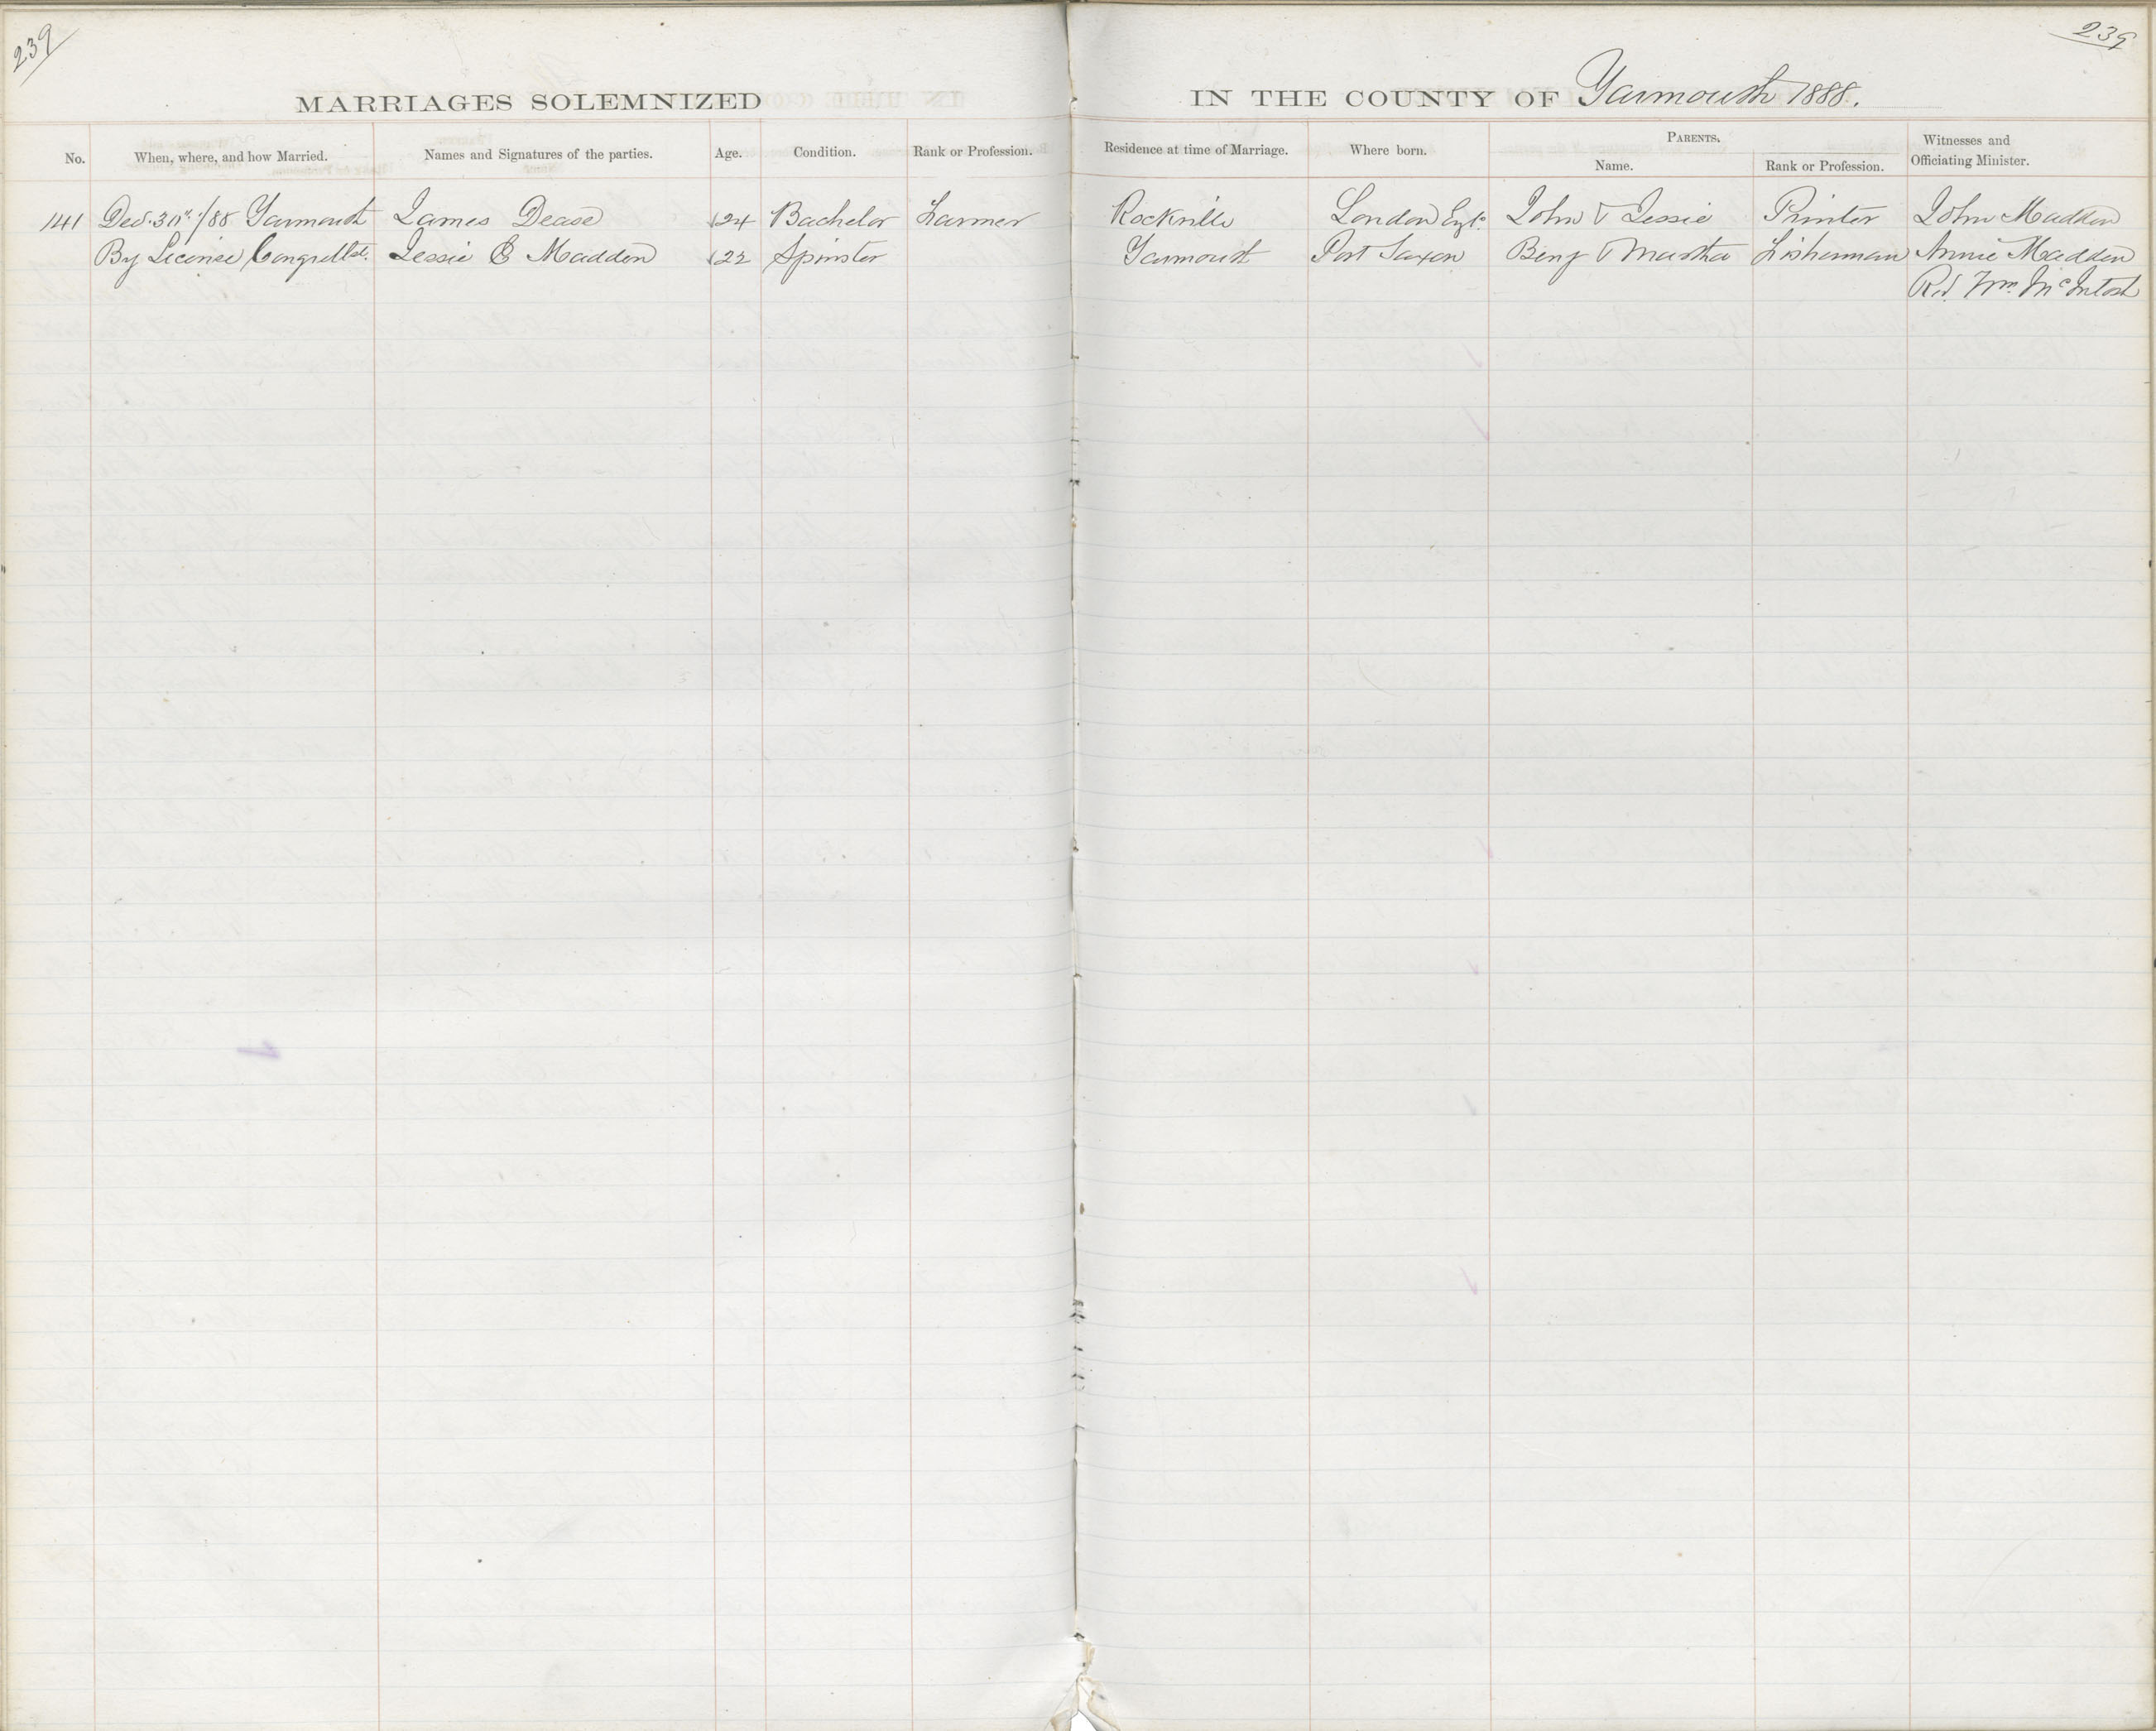 239
239
MARRIAGES SOLEMNIZED IN THE COUNTY OF Yarmouth 1888.
No. When, where, and how Married. Names and Signatures of the parties. Age. Condition. Rank or Profession. Residence at time of Marriage. Where born. PARENTS. Name. Rank or Profession. Witnesses and Officiating Minister.
141 Dec. 30th /88 Yarmouth James Dease 24 Bachelor Farmer Rockville London Eng. John & Jessie Printer John Madden
By License Congrellst. Jessie E Madden 22 Spinster Yarmouth Port Saxon Benj & Martha Fisherman Annie Madden
Rev. Wm. McIntosh